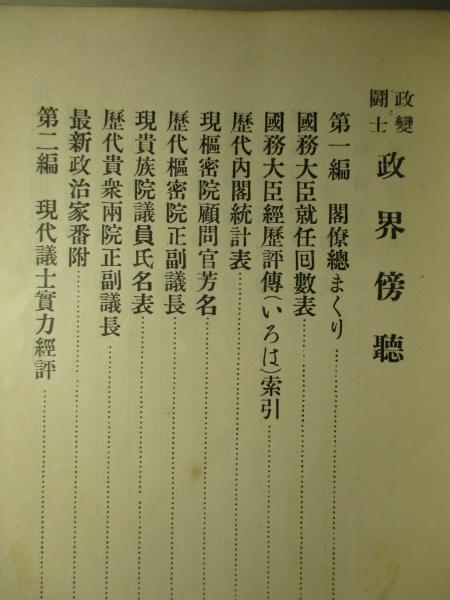 政變
鬪士
政界傍聽
第一編 閣僚總まくり
國務大臣就任回數表
國務大臣經歷評傳(いろは)索引
歷代內閣統計表
現樞密院顧問官芳名
歷代樞密院正副議長
現貴族院議員氏名表
歷代貴衆兩院正副議長
最新政治家番附
第二編 現代議士實力經評